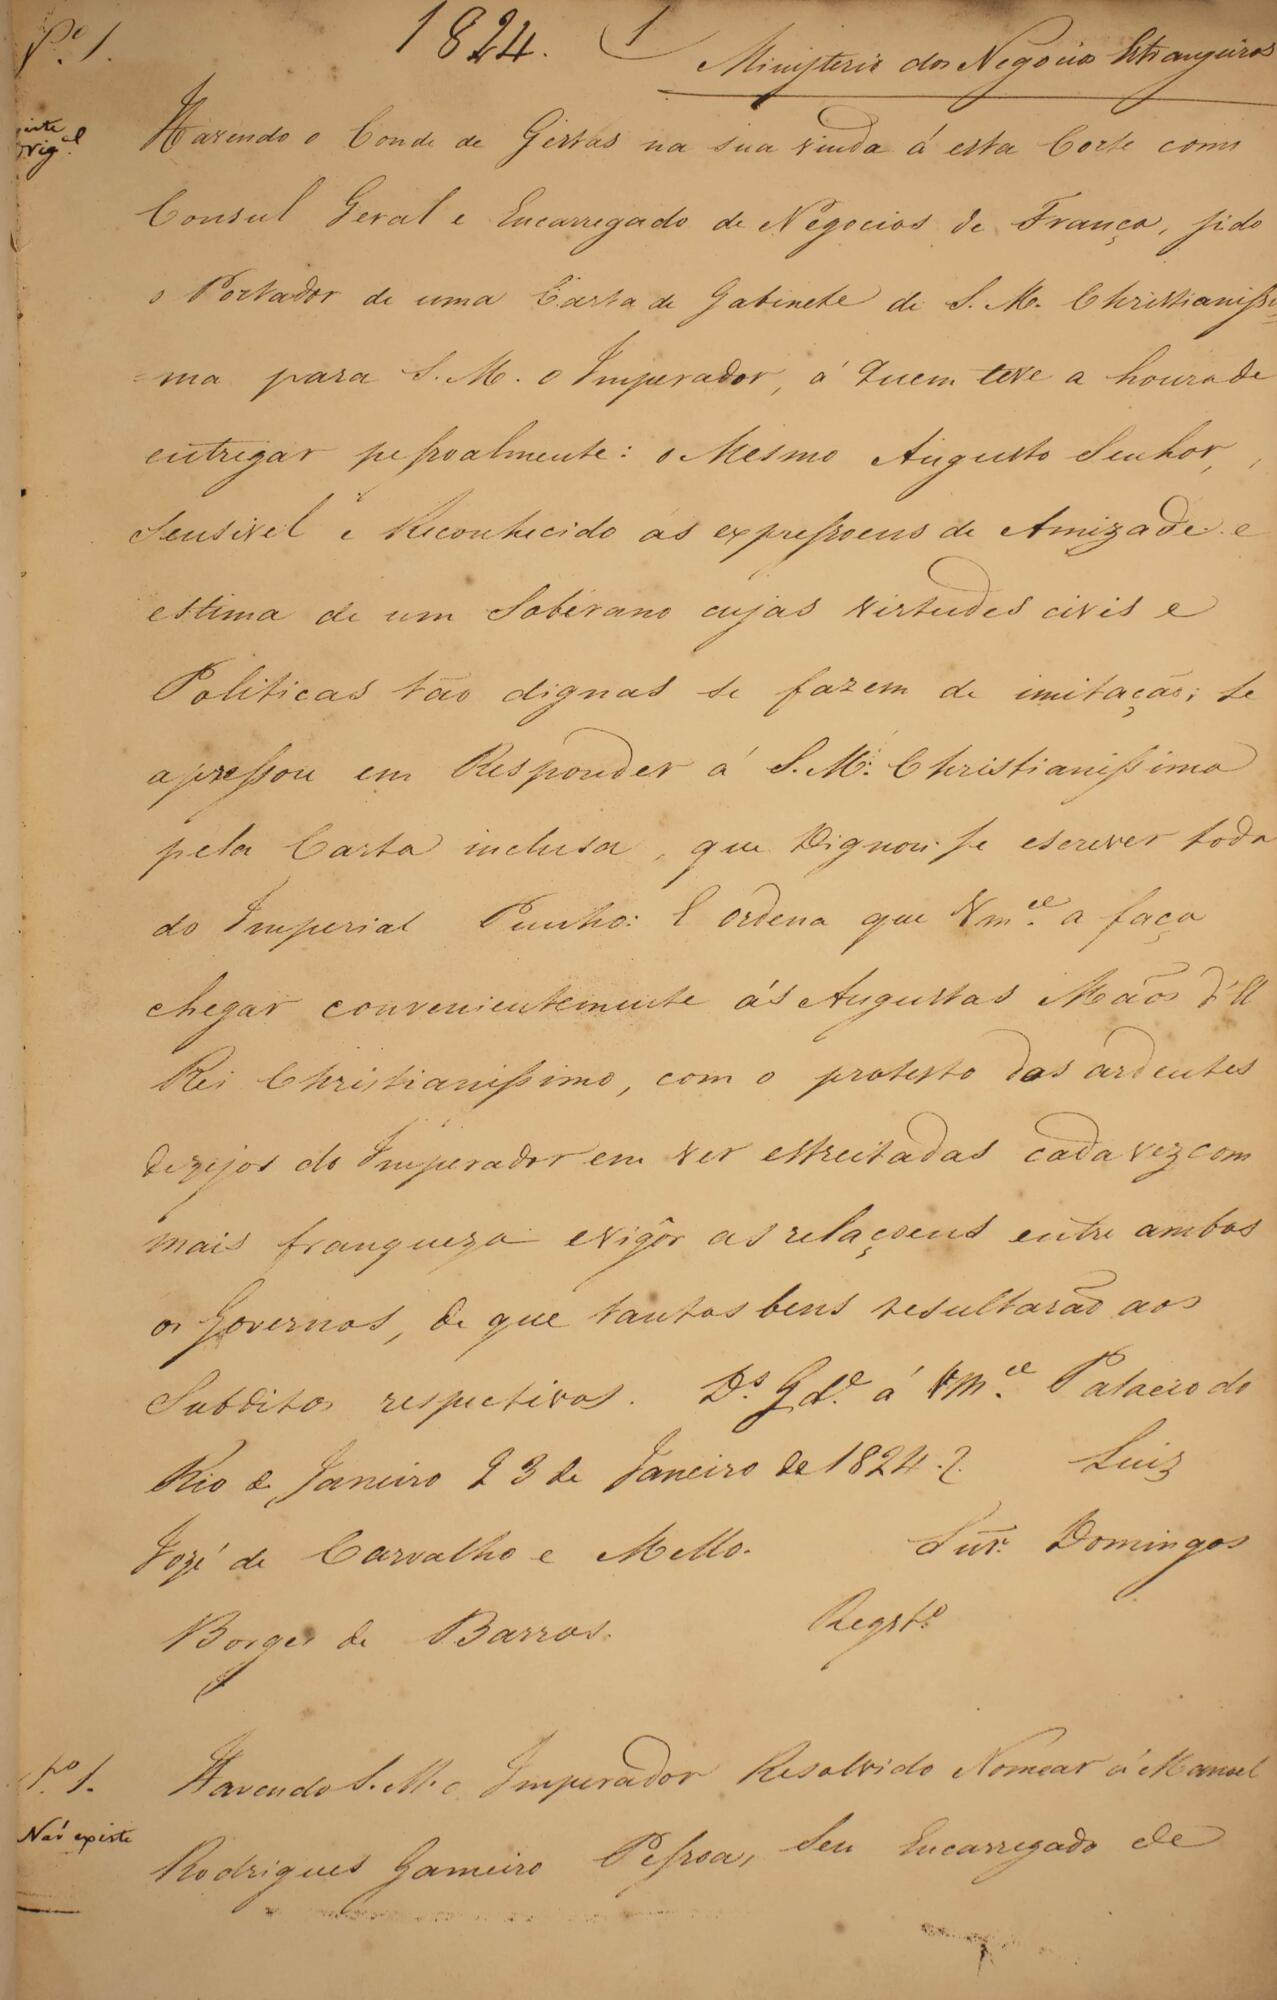 Nº 1.
1824.
1
Ministerio dos Negocios Estrangeiros
Orig.al
Havendo o Conde de Gestas na sua vinda á esta Corte como
Consul Geral e Encarregado de Negocios de França, sido
o Portador de uma Carta de Gabinete de S. M. Christianissi-
=ma para S. M. o Imperador, á Quem teve a honra de
entregar pessoalmente: o Mesmo Augusto Senhor,
Sensivel e Reconhecido ás expressoens de Amizade e
estima de um Soberano cujas virtudes civis e
Politicas tão dignas se fazem de imitação; se
apressou em Responder á S. M. Christianissima
pela Carta inclusa, que Dignou-se escrever toda
do Imperial Punho: E ordena que Vm.ce a faça
chegar convenientemente ás Augustas Mãos d'El
Rei Christianissimo, com o protesto dos ardentes
dezejos do Imperador em ver estreitadas cada vez com
mais franqueza e vigôr as relaçoens entre ambos
os Governos, de que tantos bens resultarão aos
Subditos respectivos. D.s G.de á Vm.ce Palacio do
Rio de Janeiro 23 de Janeiro de 1824. Luiz
Jozé de Carvalho e Mello. Snr. Domingos
Borges de Barros. Regst.º
Nº 1.
Não existe
Havendo S. M. o Imperador Resolvido Nomear á Manoel
Rodrigues Gameiro Pessoa, Seu Encarregado de